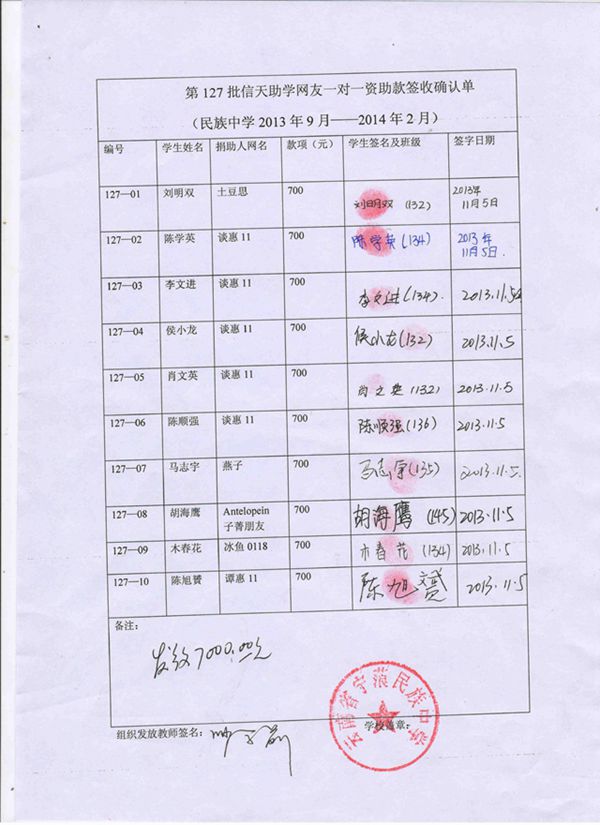 第 127 批信天助学网友一对一资助款签收确认单
（民族中学 2013 年 9 月——2014 年 2 月）
编号 学生姓名 捐助人网名 款项（元） 学生签名及班级 签字日期
127—01 刘明双 土豆思 700 刘明双（132） 2013年11月5日
127—02 陈学英 谈惠 11 700 陈学英(134) 2013年11月5日.
127—03 李文进 谈惠 11 700 李文进(134). 2013.11.5
127—04 侯小龙 谈惠 11 700 侯小龙(132) 2013.11.5
127—05 肖文英 谈惠 11 700 肖文英(132) 2013.11.5
127—06 陈顺强 谈惠 11 700 陈顺强(136) 2013.11.5
127—07 马志宇 燕子 700 马志宇(135) 2013.11.5.
127—08 胡海鹰 Antelopein 700 胡海鹰 (145) 2013.11.5
子菁朋友
127—09 木春花 冰鱼 0118 700 木春花 (134) 2013.11.5
127—10 陈旭赟 谭惠 11 700 陈旭赟 2013.11.5
备注：
发放7000.00元
组织发放教师签名： 学校盖章：
云南省宁蒗民族中学